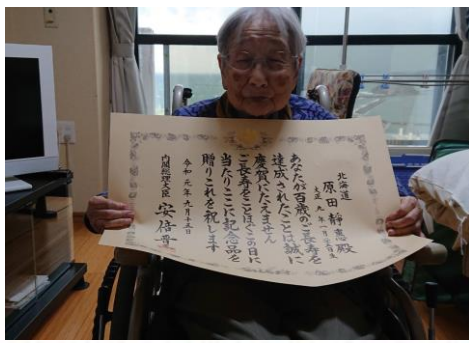 北海道
原田静恵殿
あなたが百歳のご長寿を
達成されたことは誠に
慶賀にたえません
ご長寿をことほぐこの日に
当たりここに記念品を
贈りこれを祝します
令和元年九月十五日
内閣総理大臣 安倍晋